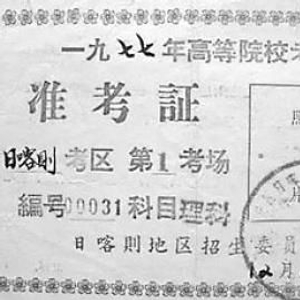 一九七七年高等院校
准考証
照
日喀則考区 第1考场
編号00031科目理科
日喀則地区招生委員
12月